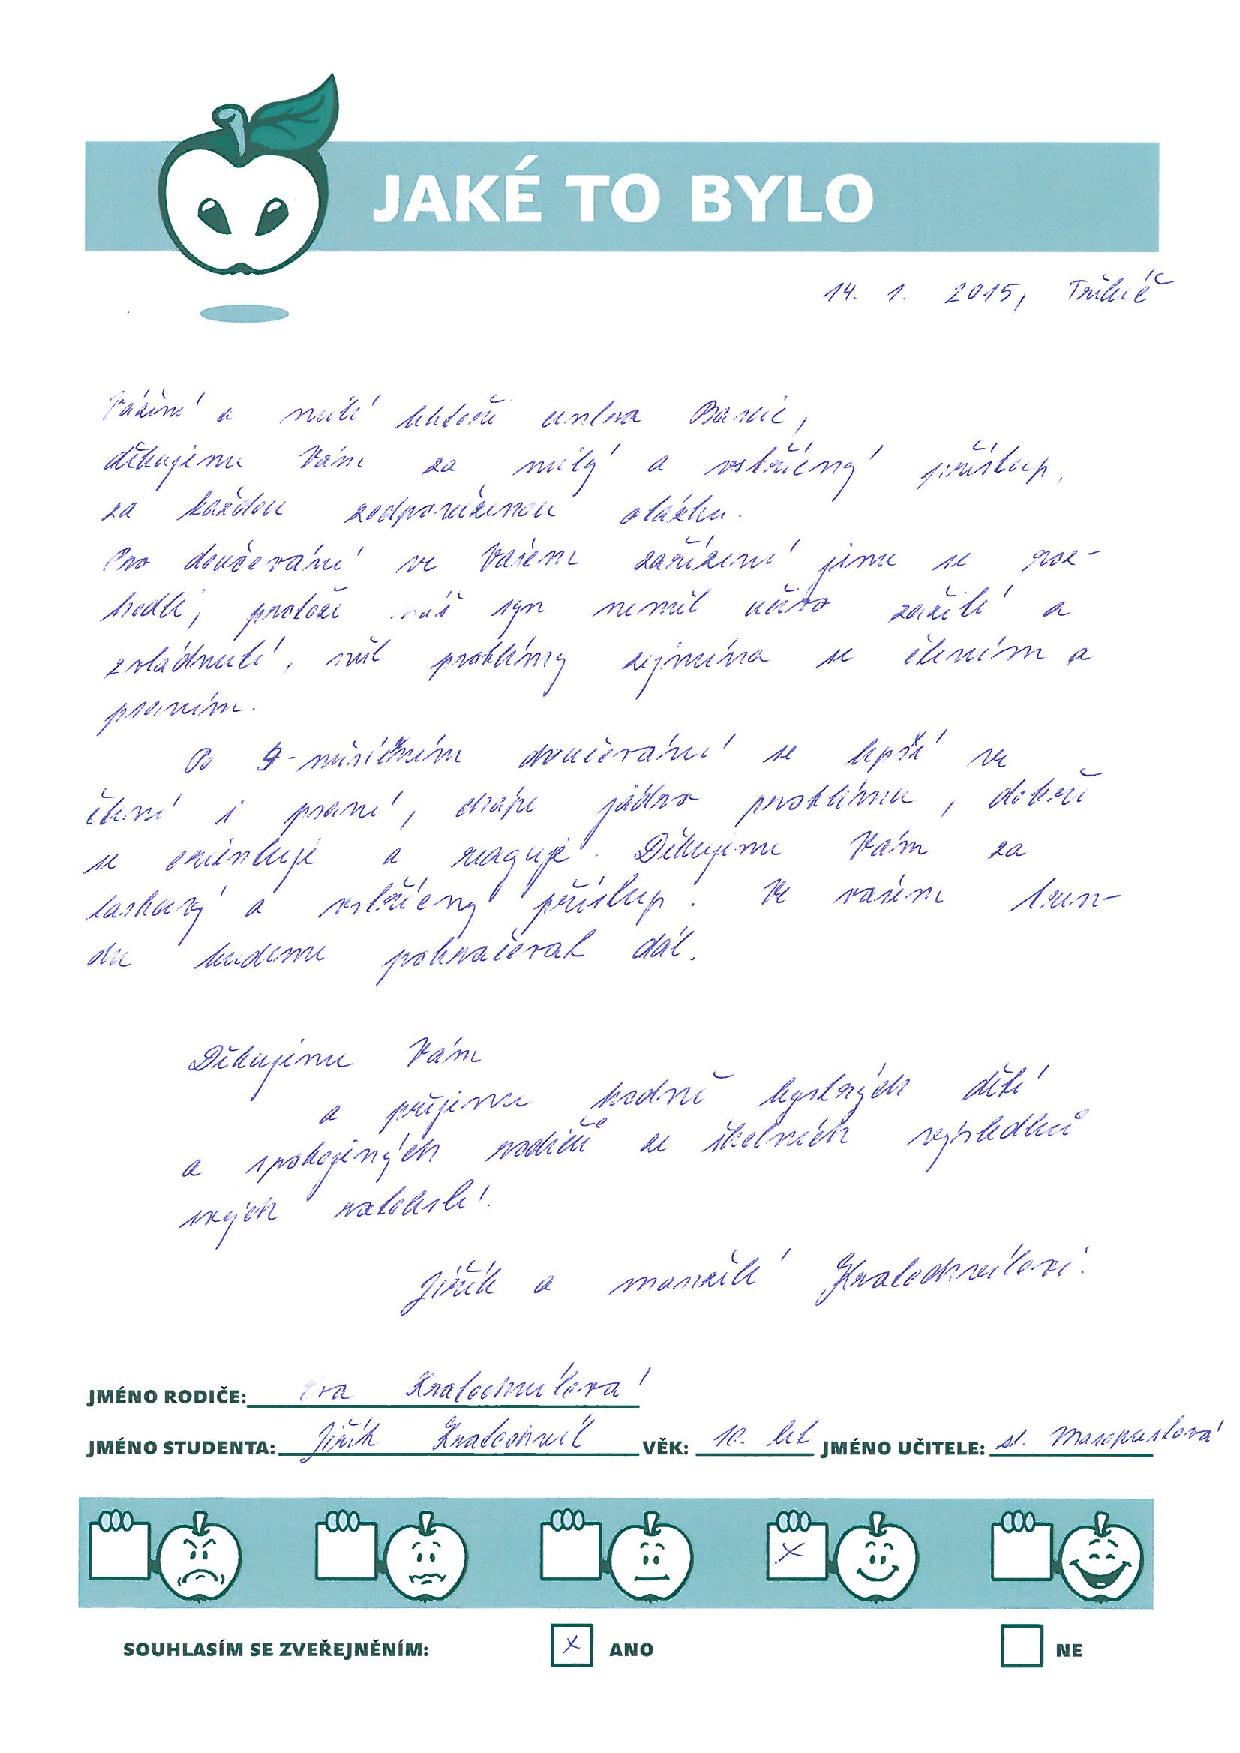 JAKÉ TO BYLO
14. 1. 2015, Třebíč
Vážení a milí
děkujeme Vám za milý a vstřícný přístup,
za každou zodpovězenou otázku.
Pro doučování ve Vašem zařízení jsme se roz-
hodli, protože náš syn neměl učivo zažité a
zvládnuté, měl problémy zejména se čtením a
psaním.
Po 9-měsíčním doučování se lepší ve
čtení i psaní, chápe jádro problému, dobře
se orientuje a reaguje. Děkujeme Vám za
laskavý a vstřícný přístup! Ve vašem
budeme pokračovat dál.
Děkujeme Vám
a přejeme hodně bystrých dětí
a spokojených rodičů ze školních výsledků
svých ratolestí.
Jiřík a manželé Kratochvílovi.
JMÉNO RODIČE: Eva Kratochvílová
JMÉNO STUDENTA: Jiřík Kratochvíl VĚK: 10 let JMÉNO UČITELE: sl.
SOUHLASÍM SE ZVEŘEJNĚNÍM: x ANO NE